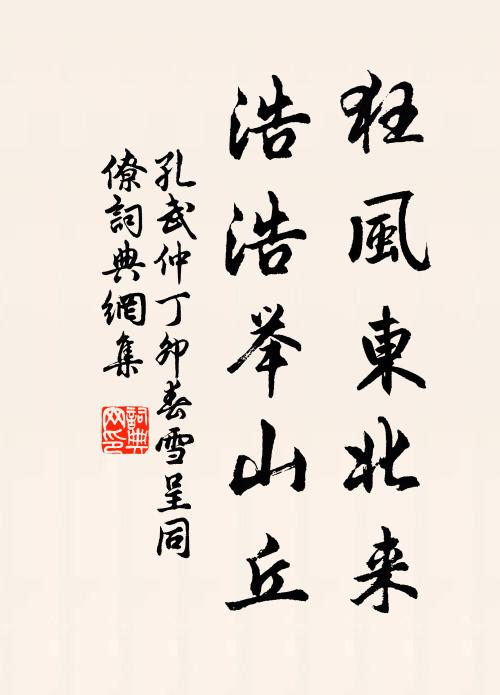 狂風東北来
浩浩举山丘
孔武仲丁卯春雪呈同
僚詞典網集
詞典
网印